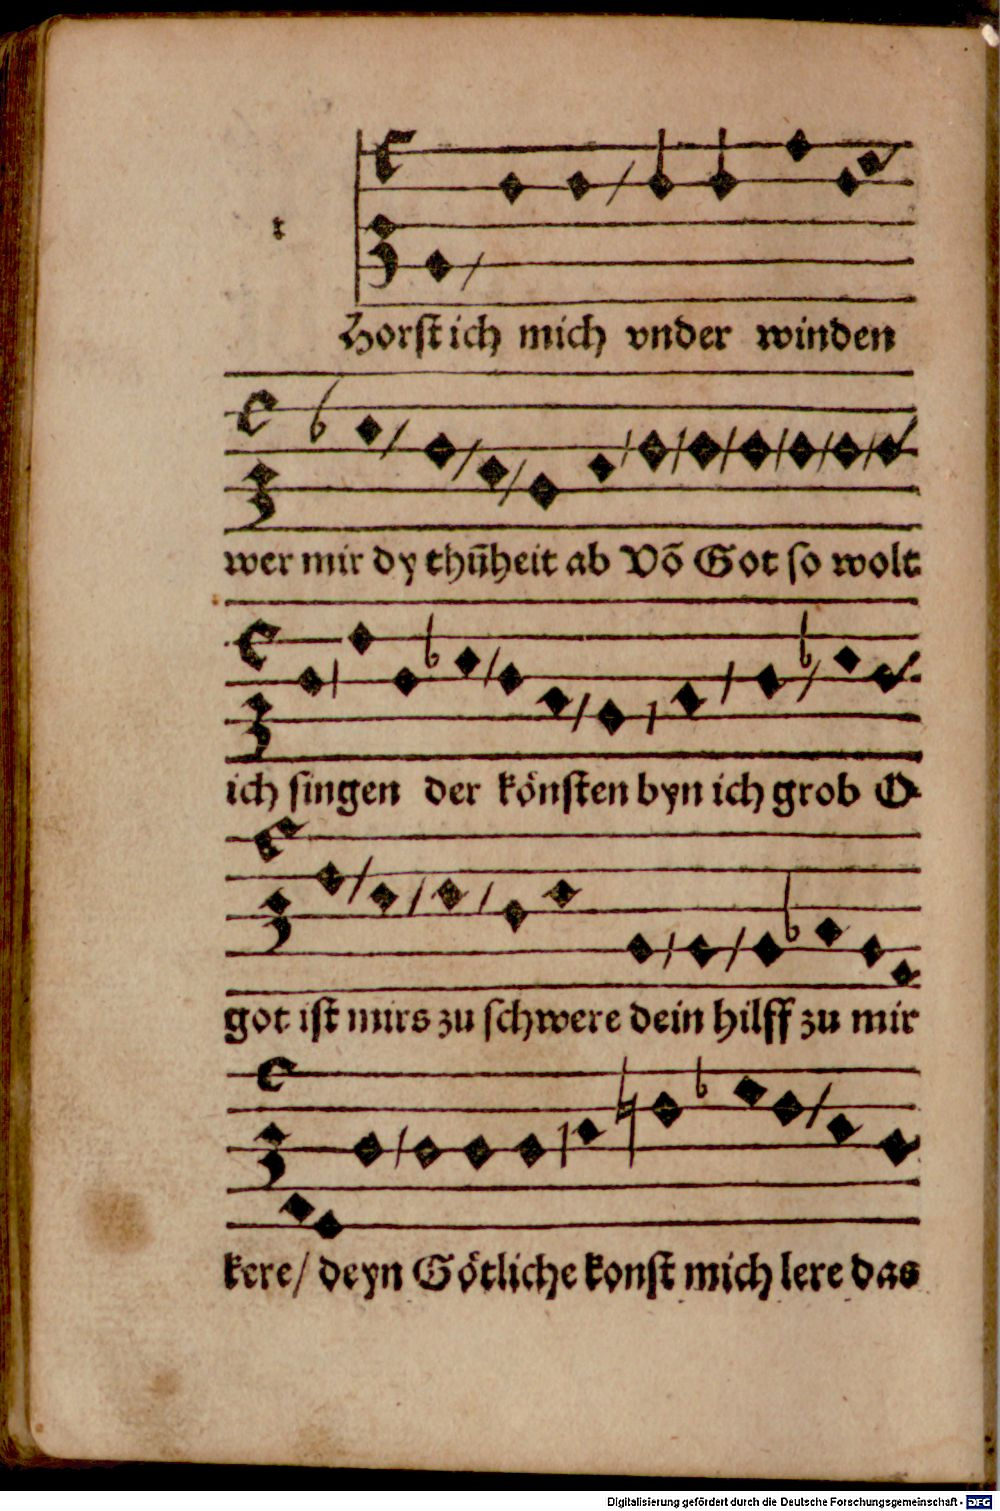 Horſt ich mich vnder winden
wer mir dy thūheit ab Võ Got ſo wolt
ich ſingen der könſten byn ich grob O
got iſt mirs zu ſchwere dein hilff zu mir
kere/ deyn Götliche konſt mich lere das
Digitalisierung gefördert durch die Deutsche Forschungsgemeinschaft - DFG